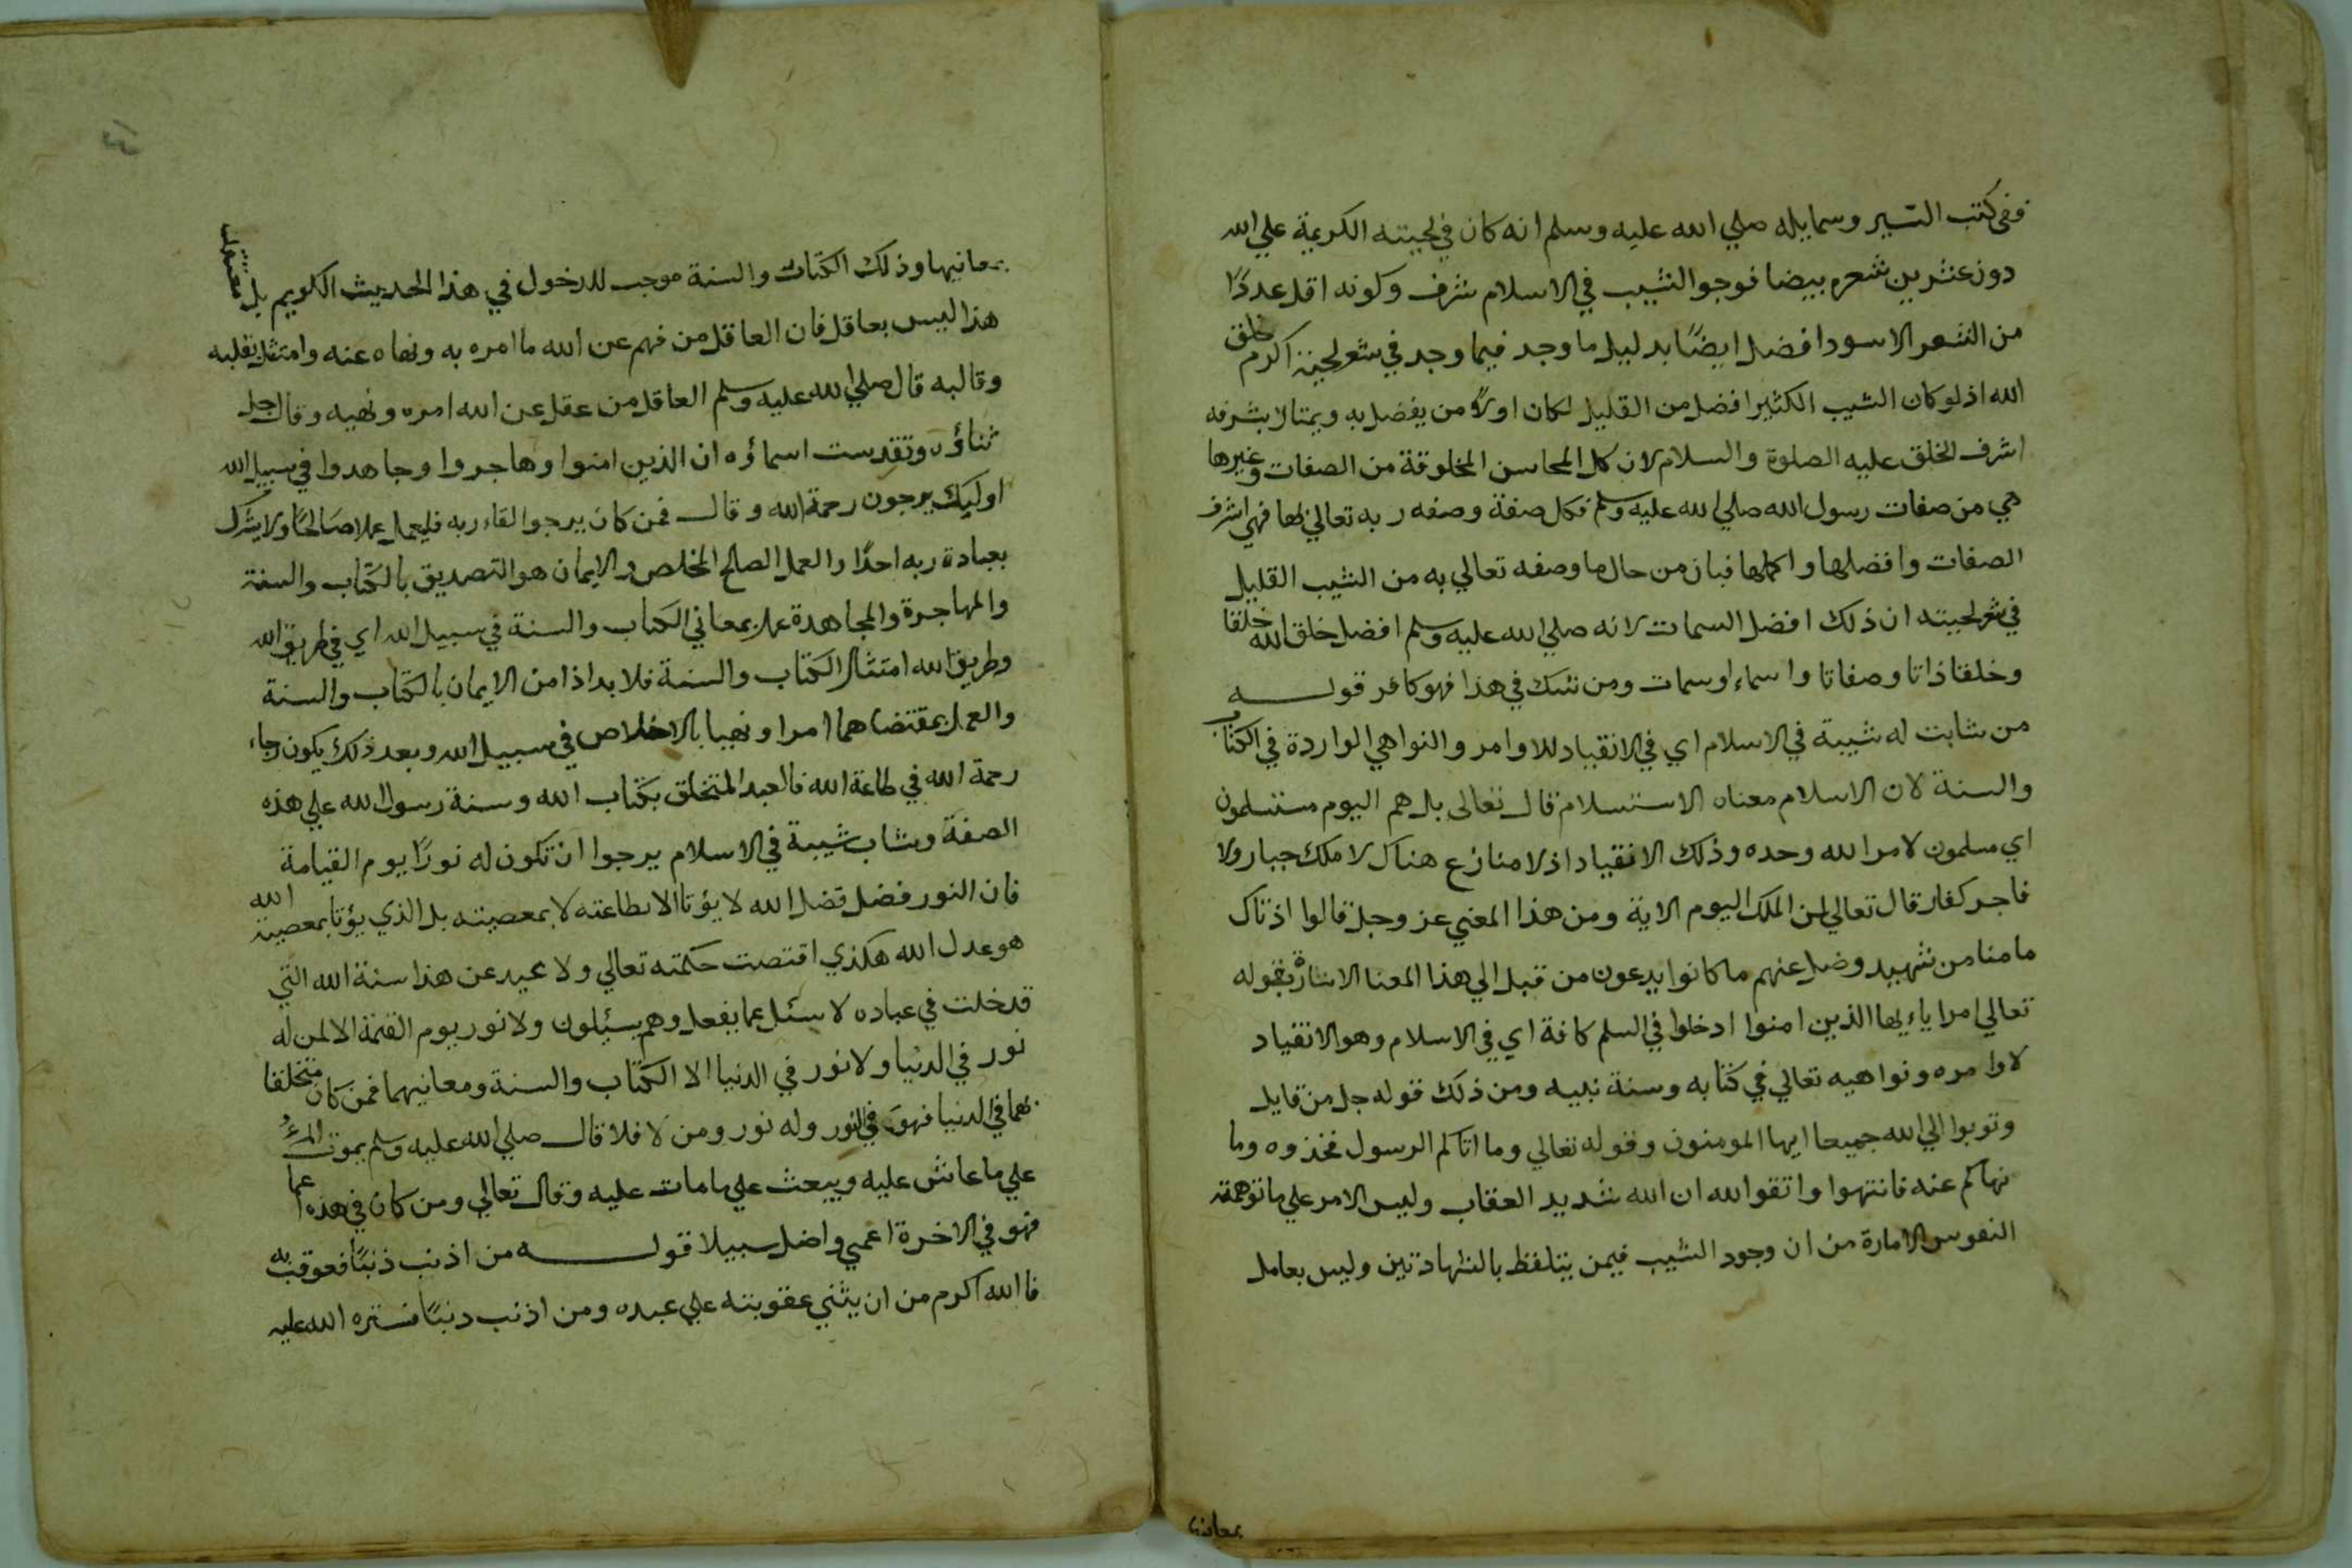 ففى كتب السير وسمايله صلي الله عليه وسلم انه كان في لحيته الكريمة علي الله
دون عشرين شعره بيضا فوجو الشيب في الاسلام شرف وكونه اقل عددًا
من الشعر الاسود افضل ايضًا بدليل ما وجد فيما وجد في شعر لحية اكرم خلق
الله اذ لو كان الشيب الكثير افضل من القليل لكان اولًا من يفضل به ويمتاز بشرفه
اشرف الخلق عليه الصلوة والسلام لان كل المحاسن المخلوقة من الصفات وغيرها
هي من صفات رسول الله صلي الله عليه وسلم فكل صفة وصفه ربه تعالي بها فهي اشرف
الصفات وافضلها واكملها فبان من حال ما وصفه تعالي به من الشيب القليل
في شعر لحيته ان ذلك افضل السمات لانه صلي الله عليه وسلم افضل خلق الله خلقا
وخلقا ذاتا وصفاتا واسماء اوسمات ومن شك في هذا فهو كافر قوله
من شابت له شيبة في الاسلام اي في الانقياد للاوامر والنواهي الواردة في الكتاب
والسنة لان الاسلام معناه الاستسلام قال تعالى بل هم اليوم مستسلمون
اي مسلمون لامر الله وحده وذلك الانقياد اذ لا منازع هناك لا ملك جبار ولا
فاجر كفار قال تعالي لمن الملك اليوم الاية ومن هذا المعني عز وجل قالوا اذناك
ما منا من شهيد وضل عنهم ما كانوا يدعون من قبل الي هذا المعنا الاشارة بقوله
تعالي امرا ياء يها الذين امنوا ادخلوا في السلم كافة اي في الاسلام وهو الانقياد
لاوامره ونواهيه تعالي في كتابه وسنة نبيه ومن ذلك قوله جل من قايل
وتوبوا الي الله جميعا ايها المومنون وقوله تعالي وما اتاكم الرسول فخذوه وما
نهاكم عنه فانتهوا واتقوا الله ان الله شديد العقاب وليس الامر علي ما توهمته
النفوس الامارة من ان وجود الشيب فيمن يتلفظ بالشهادتين وليس بعامل
بمعانيها
بمعانيها وذلك الكتاب والسنة موجب للدخول في هذا الحديث الكريم بل
هذا ليس بعاقل فان العاقل من فهم عن الله ما امره به ونهاه عنه وامتثل بقلبه
وقالبه قال صلي الله عليه وسلم العاقل من عقل عن الله امره ونهيه وقال جل
ثناؤه وتقدست اسماؤه ان الذين امنوا وهاجروا وجاهدوا في سبيل الله
اوليك يرجون رحمة الله وقال فمن كان يرجوا لقاء ربه فليعمل عملا صالحًا ولا يشرك
بعبادة ربه احدًا والعمل الصالح المخلص والايمان هو التصديق بالكتاب والسنة
والمهاجرة والمجاهدة عملا بمعاني الكتاب والسنة في سبيل الله اي في طريق الله
وطريق الله امتثال الكتاب والسنة فلا بد اذا من الايمان بالكتاب والسنة
والعمل بمقتضاهما امرا ونهيا بالاخلاص في سبيل الله وبعد ذلك يكون رجاء
رحمة الله في طاعة الله فالعبد المتخلق بكتاب الله وسنة رسول الله علي هذه
الصفة وشاب شيبة في الاسلام يرجوا ان تكون له نورًا يوم القيامة
فان النور فضل فضل الله لا يؤتا الا بطاعته لا بمعصيته بل الذي يؤتا بمعصية الله
هو عدل الله هكذي اقتصت حكمته تعالي ولا محيد عن هذا سنة الله التي
قد خلت في عباده لا سئل عما يفعل وهم يسئلون ولا نور يوم القيمة الا لمن له
نور في الدنيا ولا نور في الدنيا الا الكتاب والسنة ومعانيهما فمن كان متخلقا
بهما في الدنيا فهو في النور وله نور ومن لا فلا قال صلي الله عليه وسلم يموت المرءُ
علي ما عاش عليه ويبعث علي ما مات عليه وقال تعالي ومن كان في هذه اعما
فهو في الاخرة اعمي واضل سبيلا قوله من اذنب ذنبًا فعوقب به
فالله اكرم من ان يثني عقوبته علي عبده ومن اذنب دنبًا فستره الله عليه